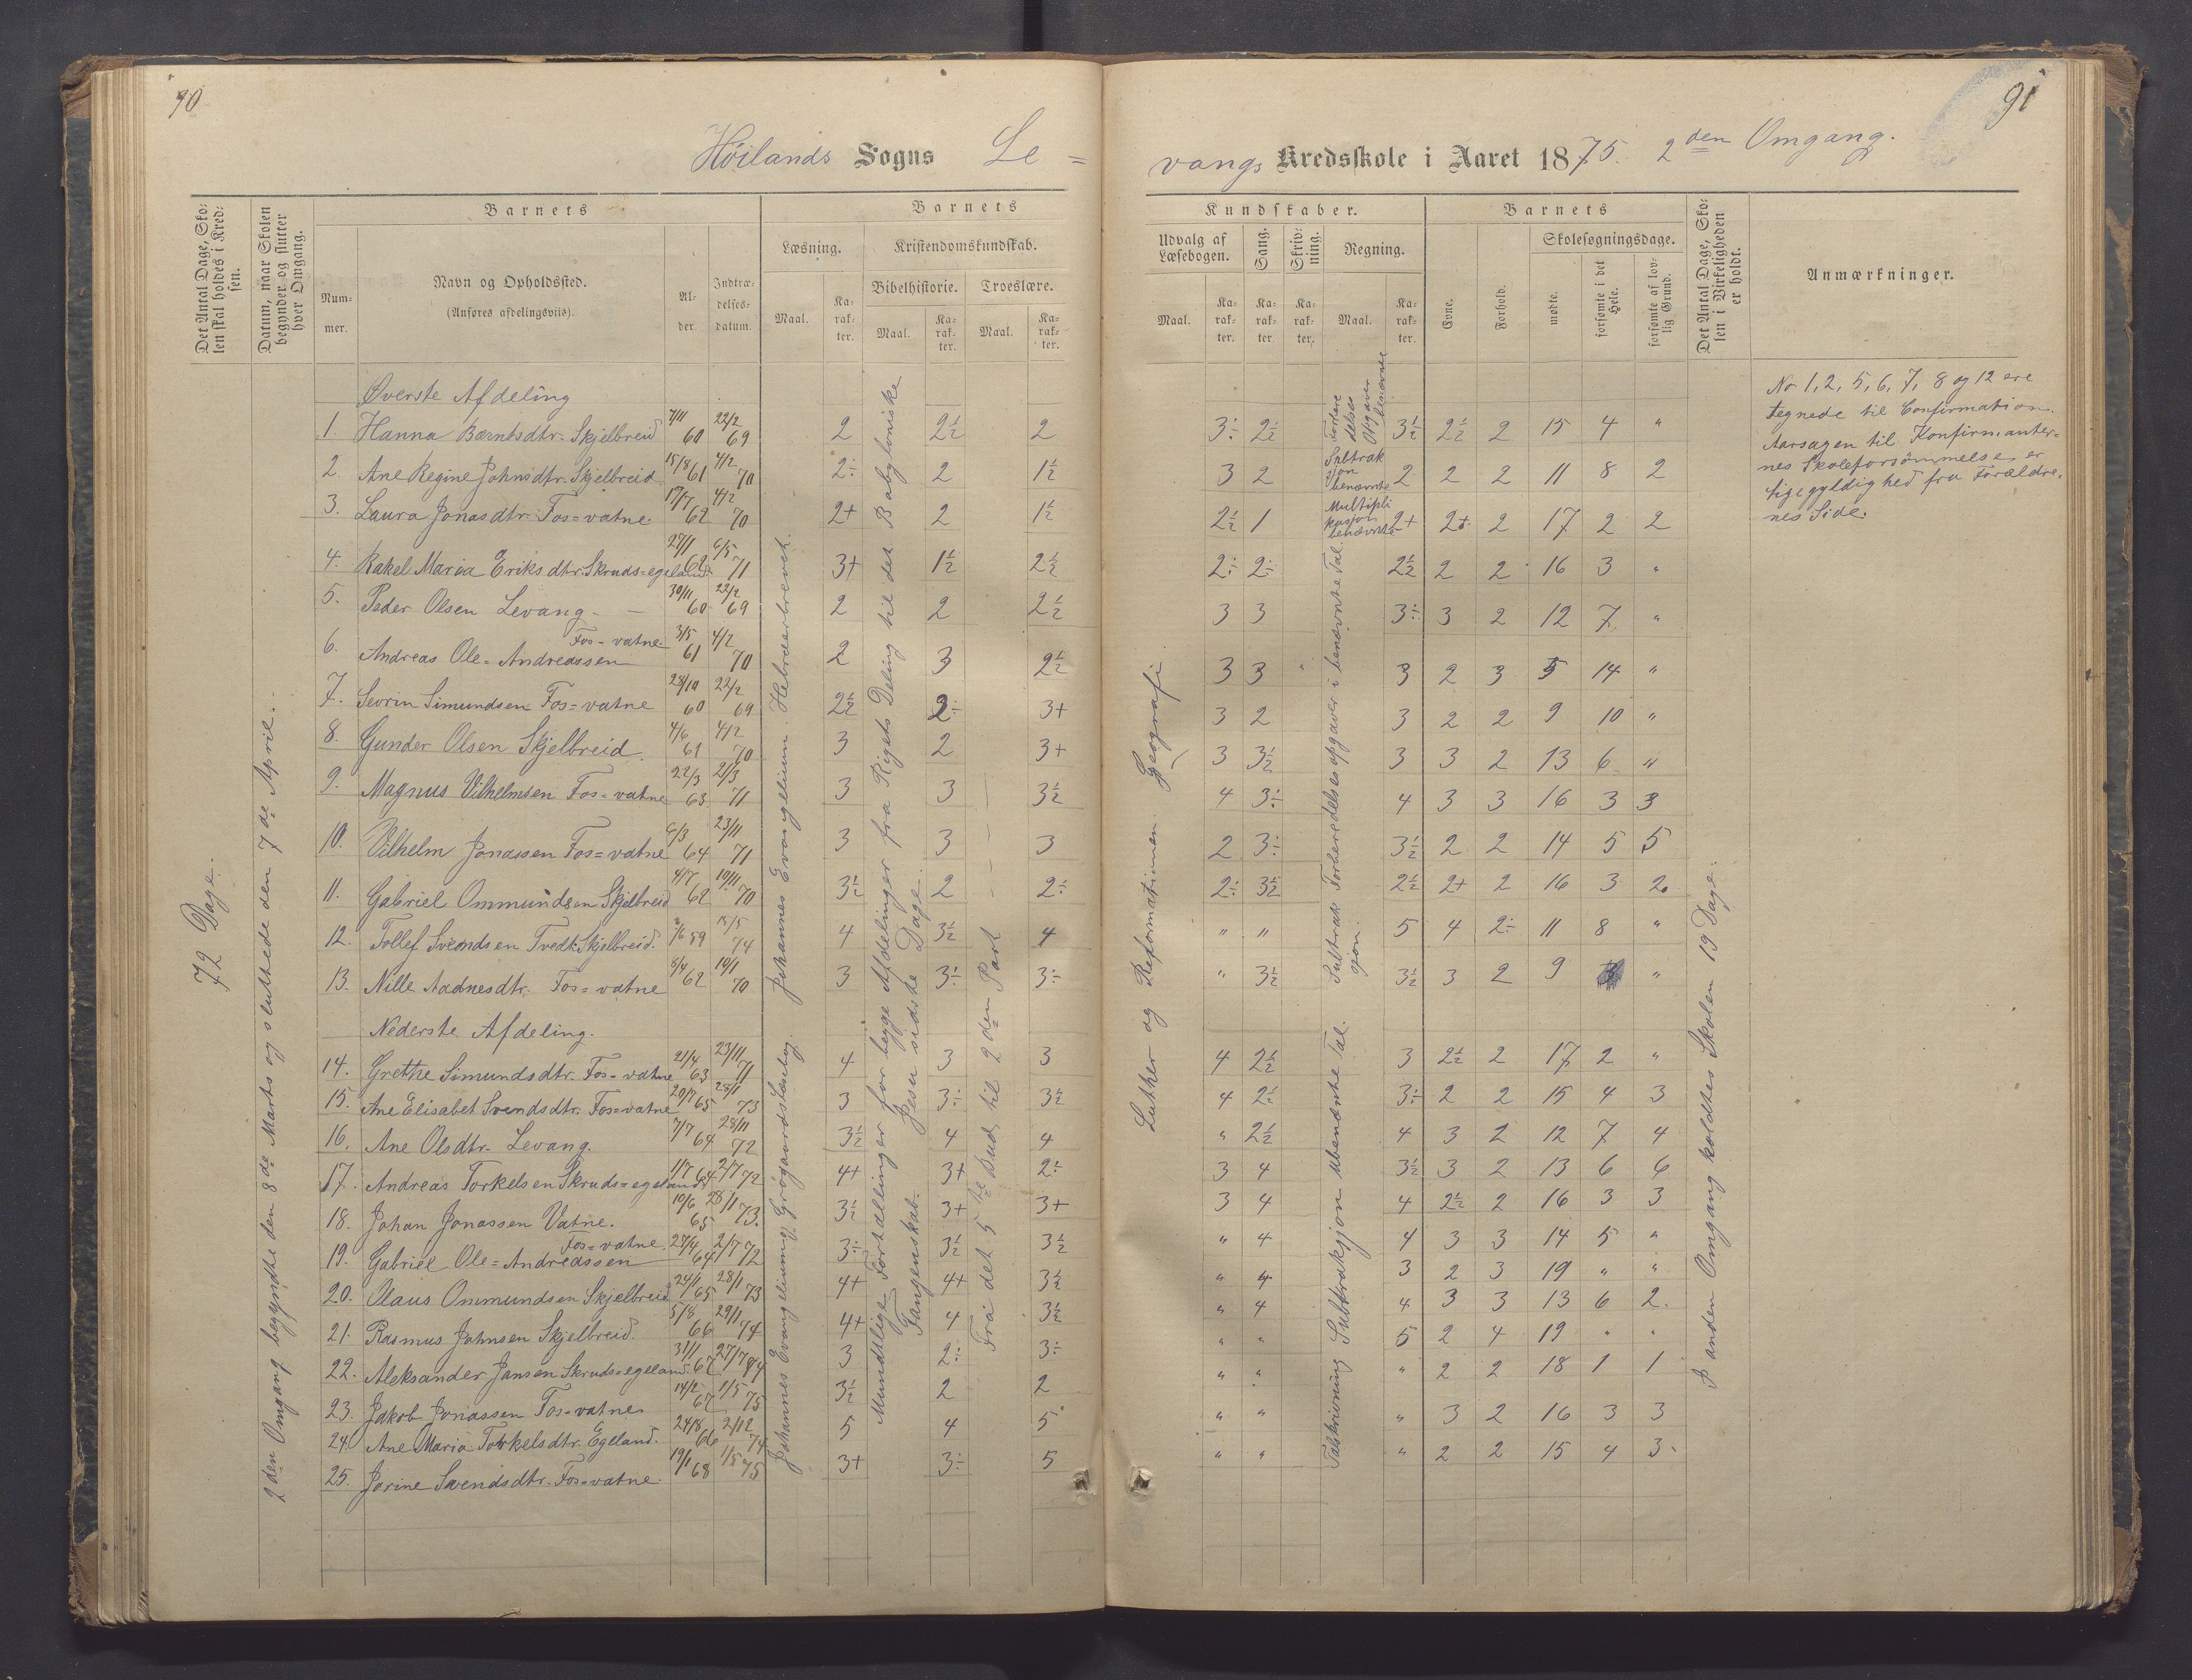 90
Höilands Sogns Le=
Det Antal Dage, Sko=
len skal holdes i Kred=
sen.
Datum, naar Skolen
begynder og slutter
hver Omgang.
Barnets
Barnets
Num=
mer.
Navn og Opholdssted.
(Anføres afdelingsviis).
Al=
der.
Indtræ=
delses=
datum.
Læsning.
Kristendomskundskab.
Bibelhistorie. Troeslære.
Maal.
Ka=
rak=
ter.
Maal.
Ka=
rak=
ter.
Maal.
Ka=
rak=
ter.
72 Dage.
2den Omgang begyndte den 8de Marts og sluttede den 7de April.
Øverste Afdeling
1. Hanna Berntsdtr. Skjelbreid 7/11 60 22/2 69 2 2½ 2
2. Ane Regine Johnsdtr. Skjelbreid 15/8 61 4/2 70 2÷ 2 1½
3. Laura Jonasdtr. Fos=vatne 17/7 62 4/2 70 2+ 2 1½
4. Rakel Maria Eriksdtr. Skruds=egeland 27/1 62 6/5 71 3+ 1½ 2½
5. Peder Olsen Levang 30/11 60 22/2 69 2 2 2½
6. Andreas Ole=Andreassen Fos=vatne 3/5 61 4/2 70 2 3 2½
7. Sevrin Simundsen Fos=vatne 28/10 60 22/2 69 2½ 2÷ 3+
8. Gunder Olsen Skjelbreid 4/6 61 4/2 70 3 2 3+
9. Magnus Vilhelmsen Fos=vatne 22/3 63 21/3 71 3 3 3½
10. Vilhelm Jonassen Fos=vatne 6/3 64 23/11 71 3 3 3
11. Gabriel Ommundsen Skjelbreid 4/7 62 10/11 70 3½ 2 2÷
12. Tollef Svendsen Tvedt Skjelbreid 59 15/5 74 4 3½ 4
13. Nille Aadnesdtr. Fos=vatne 8/4 62 10/1 70 3 3÷ 3÷
Nederste Afdeling.
14. Grethe Simundsdtr. Fos=vatne 21/4 63 23/11 71 4 3 3
15. Ane Elisabet Svendsdtr. Fos=vatne 20/7 65 28/1 73 3 3÷ 3½
16. Ane Olsdtr. Levang. 7/7 64 28/11 72 3½ 4 4
17. Andreas Torkelsen Skruds=egeland 1/7 64 2/7 72 4+ 3+ 2÷
18. Johan Jonassen Vatne. 10/6 65 28/1 73. 3½ 3+ 3+
19. Gabriel Ole=Andreassen Fos=vatne. 27/4 64 2/7 72 3÷ 3½ 3½
20. Olaus Ommundsen Skjelbreid 24/1 65 28/1 73 4+ 4+ 3½
21. Rasmus Johnsen Skjelbreid. 5/8 66 29/1 74 4+ 4 3½
22. Aleksander Jansen Skruds=egeland 31/1 67 27/7 74 3 2÷ 3÷
23. Jakob Jonassen Fos=vatne 14/2 67 1/5 75 3½ 2 2
24. Ane Maria Torkelsdtr. Egeland. 24/8 66 2/12 74 5 4 5
25. Jorine Svendsdtr. Fos=vatne 19/1 68 1/5 75 3+ 3÷ 5
Johannes Evangelium. Hebræerbrevet.
Johannes Evangelium,
Mundtlige Fortællinger for begge Afdelinger fra Rigets Deling til det Babyloniske
Fangenskab. Jesu sidste Dage.
Fra det 5te Bud, til 2den Part
91
vangs Kredsskole i Aaret 1875. 2den Omgang.
Kundskaber.
Barnets
Udvalg af
Læsebogen.
Sang.
Skriv=
ning.
Regning.
Maal.
Ka=
rak=
ter.
Ka=
rak=
ter.
Ka=
rak=
ter.
Maal.
Ka=
rak=
ter.
Evne.
Forhold.
Skolesøgningsdage.
mødte.
forsømte i det
Hele.
forsømte af lov=
lig Grund.
Det Antal Dage, Sko=
len i Virkeligheden
er holdt.
Anmærkninger.
Luther og Reformationen. Geografi.
3÷ 2½ 3½ 2½ 2 15 4 "
3 2 2 2 2 11 8 2
2½ 1 2+ 2+ 2 17 2 2
2÷ 2÷ 2½ 2 2 16 3 "
3 3 3÷ 3 2 12 7 "
3 3 " 3 2 3 5 14 "
3 2 3 2 2 9 10 "
3 3½ 3 3 2 13 6 "
4 3÷ 4 3 3 16 3 3
2 3÷ 3½ 2 2 14 5 5
2÷ 3½ 2½ 2+ 2 16 3 2
" " 5 4 2÷ 11 8 "
" 3½ 3½ 3 2 9 "
4 2½ 3 2½ 2 17 2 "
4 2½ 3÷ 2 2 15 4 3
" 2½ 4 3 2 12 7 4
3 4 3½ 3 2 13 6 6
3 4 4 2½ 2 16 3 3
" 4 4 3 3 14 5 "
" 4 3 2 3 19 " "
" 4 4 3 3 13 6 2.
" " 5 2 4 19 " "
" " " 2 2 18 1 1
" " " 3 2 16 3 3
" " " 2 2 15 4 3
Subtrak
sjon
benævnte
Multipli
kasjon
benævnte
Talskrivning Subtraksjon ubenævnte Tal. Forberedelsesopgaver i benævnte Tal.
I anden Omgang holdtes Skolen 19 Dage.
No 1, 2, 5, 6, 7, 8 og 12 ere
tegnede til Confirmation.
Aarsagen til Konfirmanter=
nes Skoleforsömmelse er
Ligegyldighed fra Forældre=
nes Side.